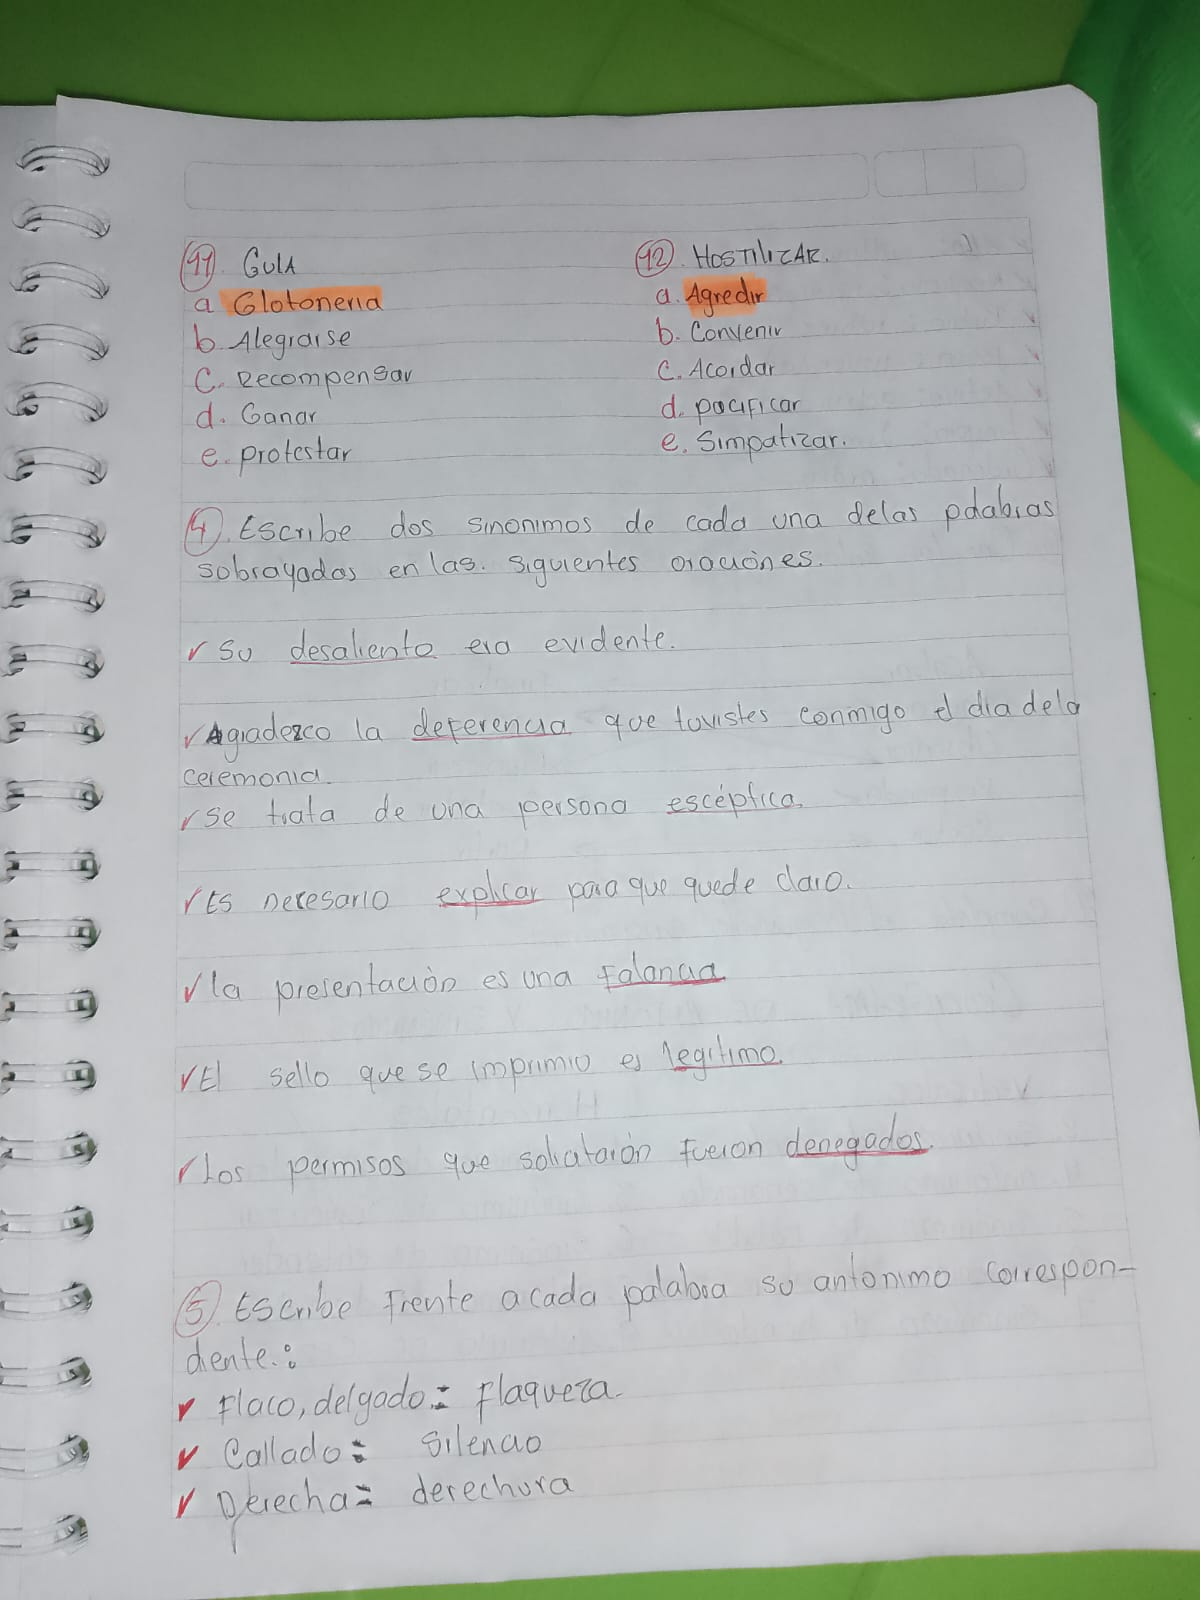 11. GULA
a Glotoneria
b. Alegrarse
C. Recompensar
d. Ganar
e. protestar
12. HOSTILIZAR.
a. Agredir
b. Convenir
c. Acordar
d. pacificar
e. Simpatizar.
4. Escribe dos sinonimos de cada una delas palabras
sobrayadas en las. siguientes oraciones.
✓ Su desaliento era evidente.
✓ Agradezco la deferencia que tuvistes conmigo el dia dela
ceremonia.
✓ se trata de una persona escéptica.
✓ Es necesario explicar para que quede claro.
✓ la presentación es una falancia
✓ El sello que se imprimio es legitimo.
✓ Los permisos que solicitarón fueron denegados.
5. Escribe frente a cada palabra su antonimo correspon-
diente.:
✓ Flaco, delgado: Flaqueza.
✓ Callado: Silencio
✓ Derecha: derechura